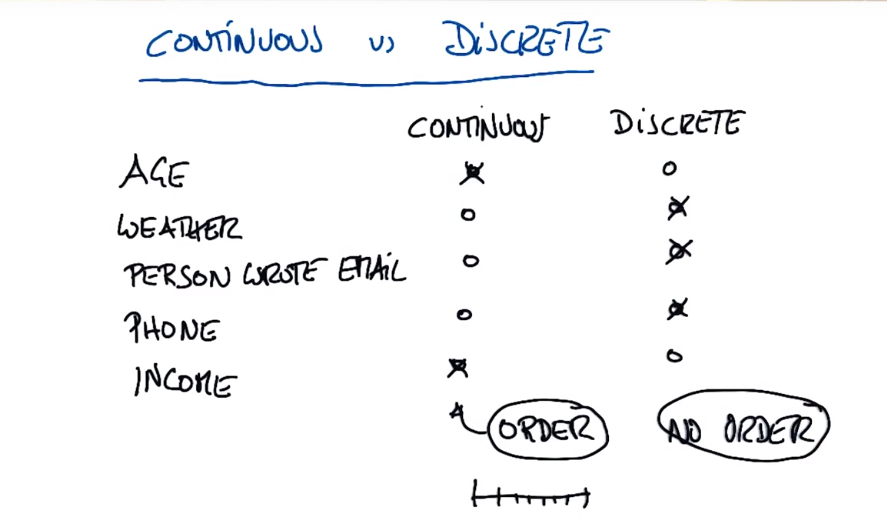 CONTINUOUS vs DISCRETE
CONTINUOUS DISCRETE
AGE
WEATHER
PERSON WROTE EMAIL
PHONE
INCOME
ORDER NO ORDER